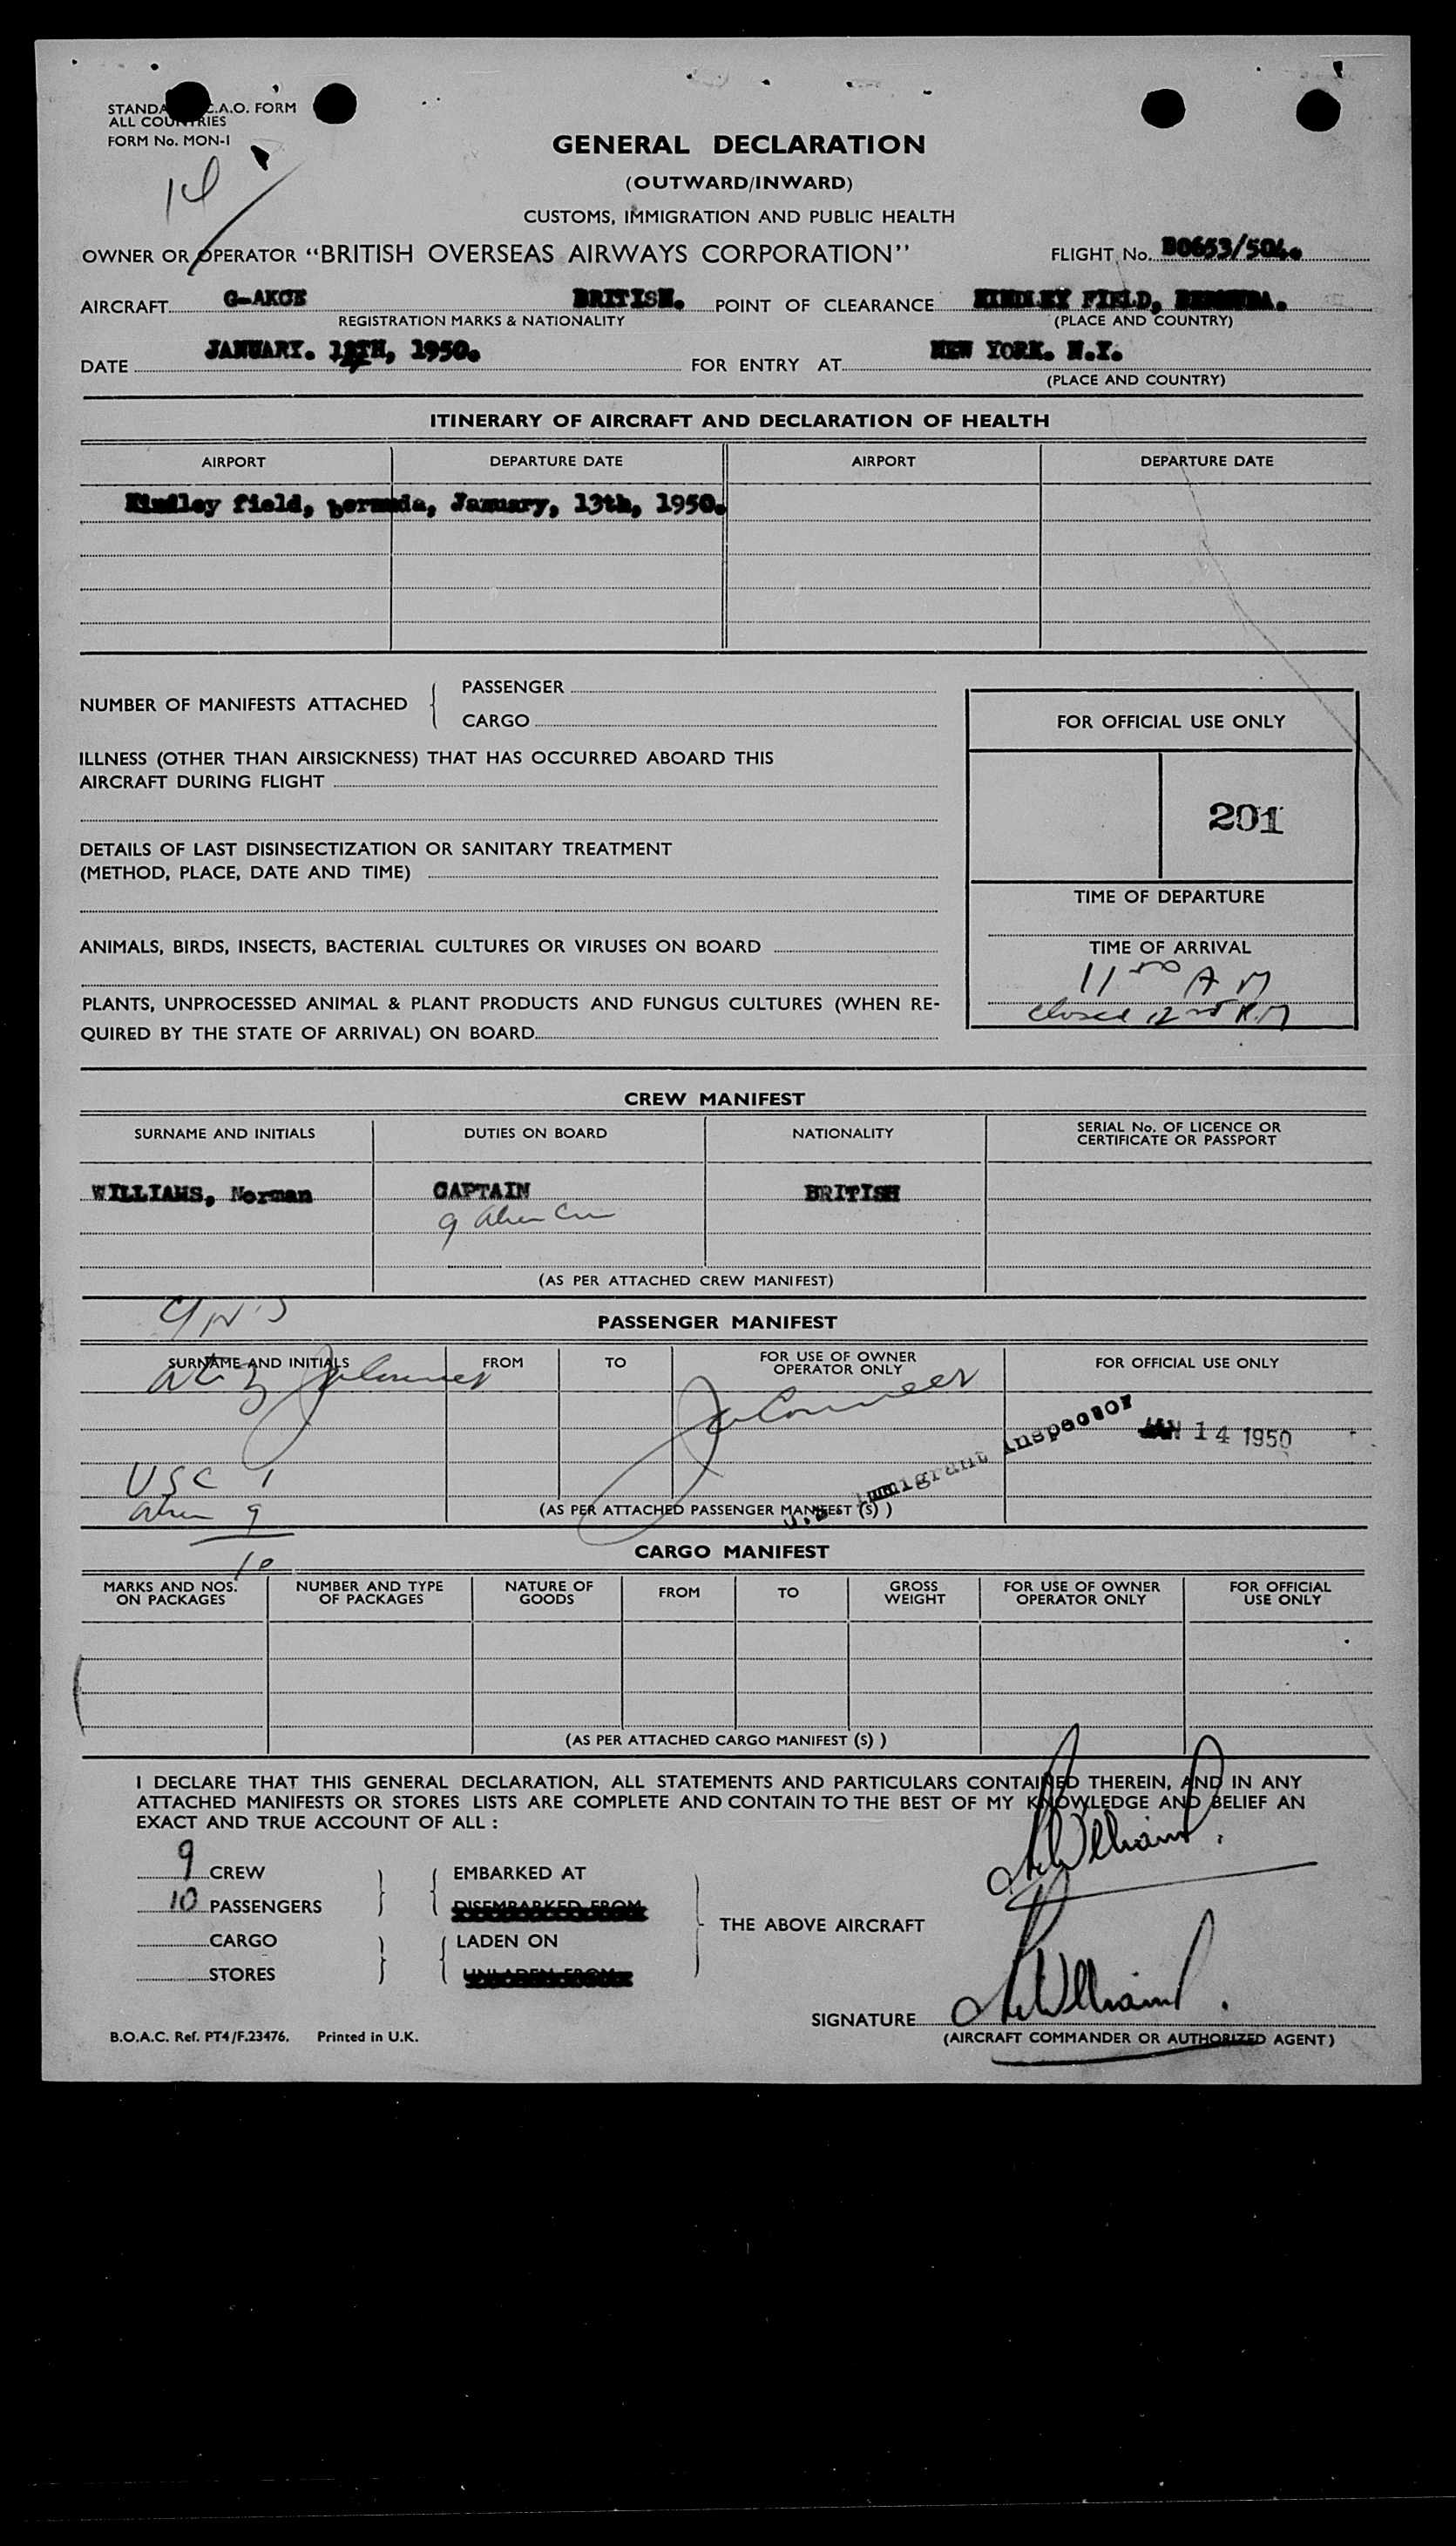 STANDA C.A.O. FORM
ALL COUNTRIES
FORM No. MON-1
14
GENERAL DECLARATION
(OUTWARD/INWARD)
CUSTOMS, IMMIGRATION AND PUBLIC HEALTH
OWNER OR OPERATOR "BRITISH OVERSEAS AIRWAYS CORPORATION" FLIGHT No. BO653/504.
AIRCRAFT G-AKCE BRITISH. POINT OF CLEARANCE KINDLEY FIELD, BERMUDA.
REGISTRATION MARKS & NATIONALITY (PLACE AND COUNTRY)
DATE JANUARY. TH, 1950. FOR ENTRY AT NEW YORK. N.Y.
(PLACE AND COUNTRY)
ITINERARY OF AIRCRAFT AND DECLARATION OF HEALTH
AIRPORT DEPARTURE DATE AIRPORT DEPARTURE DATE
Kindley field, bermuda, January, 13th, 1950.
NUMBER OF MANIFESTS ATTACHED { PASSENGER
CARGO
FOR OFFICIAL USE ONLY
ILLNESS (OTHER THAN AIRSICKNESS) THAT HAS OCCURRED ABOARD THIS
AIRCRAFT DURING FLIGHT
201
DETAILS OF LAST DISINSECTIZATION OR SANITARY TREATMENT
(METHOD, PLACE, DATE AND TIME)
TIME OF DEPARTURE
ANIMALS, BIRDS, INSECTS, BACTERIAL CULTURES OR VIRUSES ON BOARD
TIME OF ARRIVAL
11 00 A M
PLANTS, UNPROCESSED ANIMAL & PLANT PRODUCTS AND FUNGUS CULTURES (WHEN RE-
closed 12
QUIRED BY THE STATE OF ARRIVAL) ON BOARD
CREW MANIFEST
SURNAME AND INITIALS DUTIES ON BOARD NATIONALITY SERIAL No. OF LICENCE OR
CERTIFICATE OR PASSPORT
WILLIAMS, Norman CAPTAIN BRITISH
9 Alien
(AS PER ATTACHED CREW MANIFEST)
PASSENGER MANIFEST
SURNAME AND INITIALS FROM TO FOR USE OF OWNER
OPERATOR ONLY FOR OFFICIAL USE ONLY
Immigrant Inspector JAN 14 1950
USC 1
Alien 9
(AS PER ATTACHED PASSENGER MANIFEST (S) )
10
CARGO MANIFEST
MARKS AND NOS.
ON PACKAGES NUMBER AND TYPE
OF PACKAGES NATURE OF
GOODS FROM TO GROSS
WEIGHT FOR USE OF OWNER
OPERATOR ONLY FOR OFFICIAL
USE ONLY
(AS PER ATTACHED CARGO MANIFEST (S) )
I DECLARE THAT THIS GENERAL DECLARATION, ALL STATEMENTS AND PARTICULARS CONTAINED THEREIN, AND IN ANY
ATTACHED MANIFESTS OR STORES LISTS ARE COMPLETE AND CONTAIN TO THE BEST OF MY KNOWLEDGE AND BELIEF AN
EXACT AND TRUE ACCOUNT OF ALL :
9 CREW EMBARKED AT
10 PASSENGERS DISEMBARKED FROM
THE ABOVE AIRCRAFT
CARGO LADEN ON
STORES UNLADEN FROM
SIGNATURE
B.O.A.C. Ref. PT4/F.23476. Printed in U.K. (AIRCRAFT COMMANDER OR AUTHORIZED AGENT)